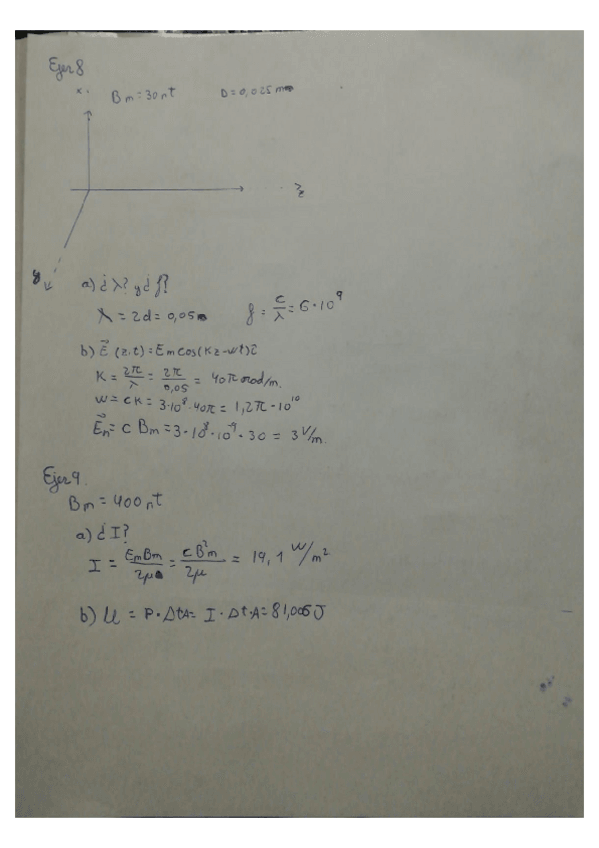 Ejer 8
x
Bm = 30 nt D = 0,025 m
z
y
a) ¿λ? y ¿f?
λ = 2d = 0,05 f = c/λ = 6·10⁹
b) E⃗ (z,t) = Em cos(Kz-wt) i⃗
K = 2π/λ = 2π/0,05 = 40π rad/m.
w = cK = 3·10⁸·40π = 1,2π·10¹⁰
E⃗m = c Bm = 3·10⁸·10⁻⁹·30 = 3 V/m.
Ejer 9.
Bm = 400 nt
a) ¿I?
I = EmBm/2μ = cB²m/2μ = 19,1 W/m²
b) U = P·Δt A = I·Δt·A = 81,005 J